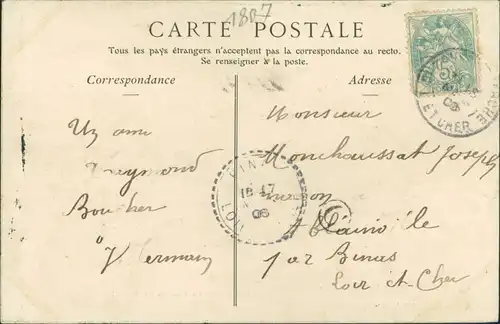 1807
CARTE POSTALE
Tous les pays étrangers n'acceptent pas la correspondance au recto.
Se renseigner à la poste.
Correspondance
Adresse
Un ami
Reymond
Boucher
Vermain
Monsieur
Monchaussat Joseph
par Binas
Loir et Cher
BINAS
18 47
06
LOIR
ET CHER